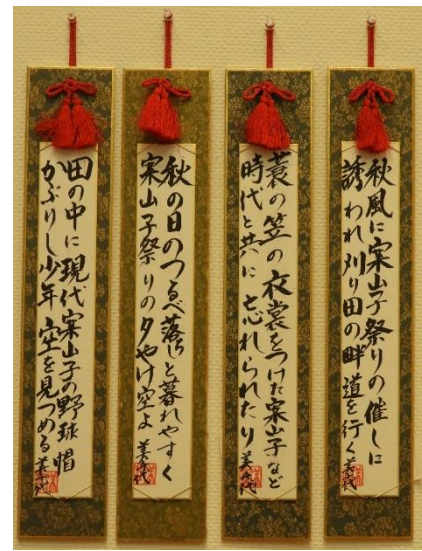 秋風に案山子祭りの催しに
誘われ刈り田の畔道を行く
蓑の笠の衣裳をつけた案山子など
時代と共に忘れられたり
秋の日のつるべ落ちと暮れやすく
案山子祭りの夕やけ空よ
田の中に現代案山子の野球帽
かぶりし少年空を見つめる